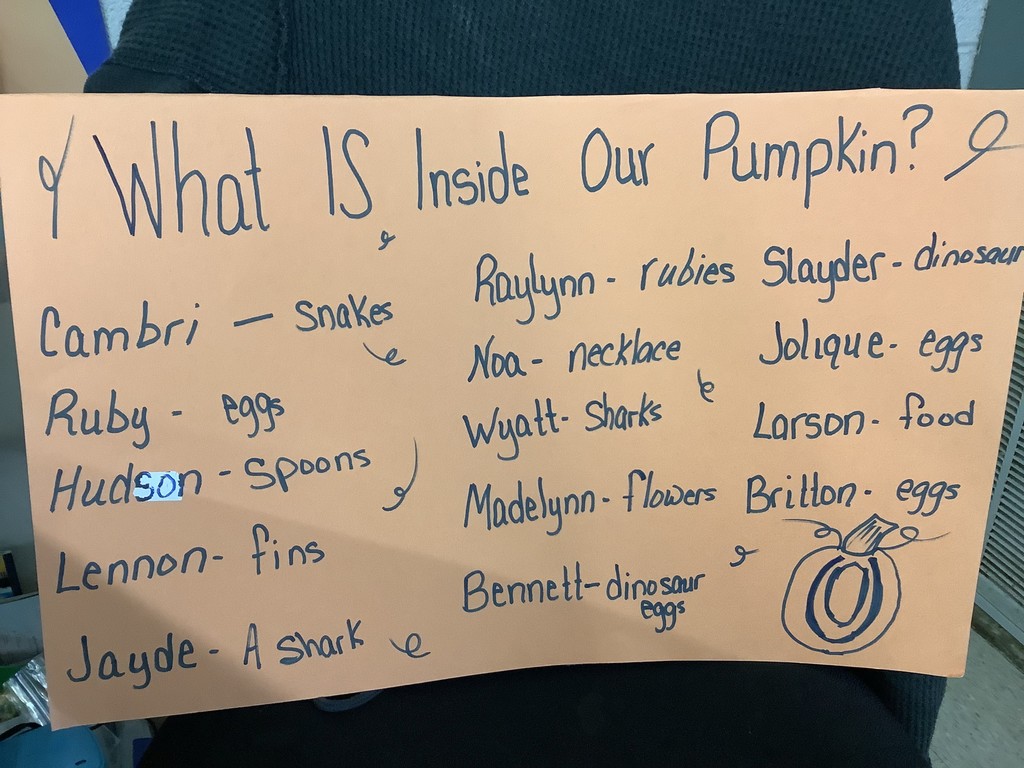 What IS Inside Our Pumpkin?
Cambri - snakes
Ruby - eggs
Hudson - spoons
Lennon - fins
Jayde - A shark
Raylynn - rubies
Noa - necklace
Wyatt - sharks
Madelynn - flowers
Bennett - dinosaur
eggs
Slayder - dinosaur
Jolique - eggs
Larson - food
Britton - eggs